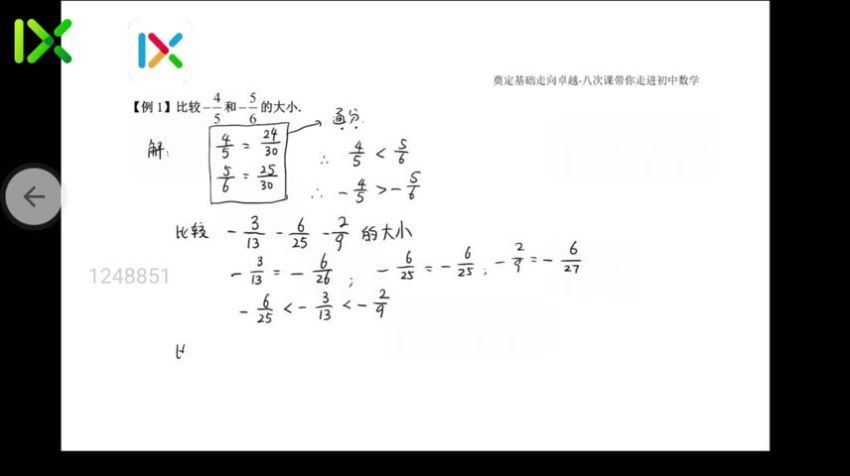 奠定基础走向卓越-八次课带你走进初中数学
【例1】比较-4/5和-5/6的大小.
解: 4/5 = 24/30 通分
5/6 = 25/30 ∴ 4/5 < 5/6
∴ -4/5 > -5/6
比较 -3/13 -6/25 -2/9 的大小
-3/13 = -6/26 ; -6/25 = -6/25 ; -2/9 = -6/27
1248851
-6/25 < -3/13 < -2/9